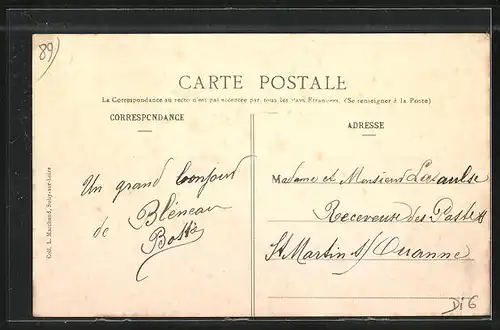 89
CARTE POSTALE
La Correspondance au recto n'est pas acceptée par tous les Pays Etrangers. (Se renseigner à la Poste)
CORRESPONDANCE
ADRESSE
Un grand bonjour
de Bléneau
Madame et Monsieur
Receveuse des Postes
St Martin s/ Ouanne
Coll. L. Marchand, Sully-sur-Loire
D16